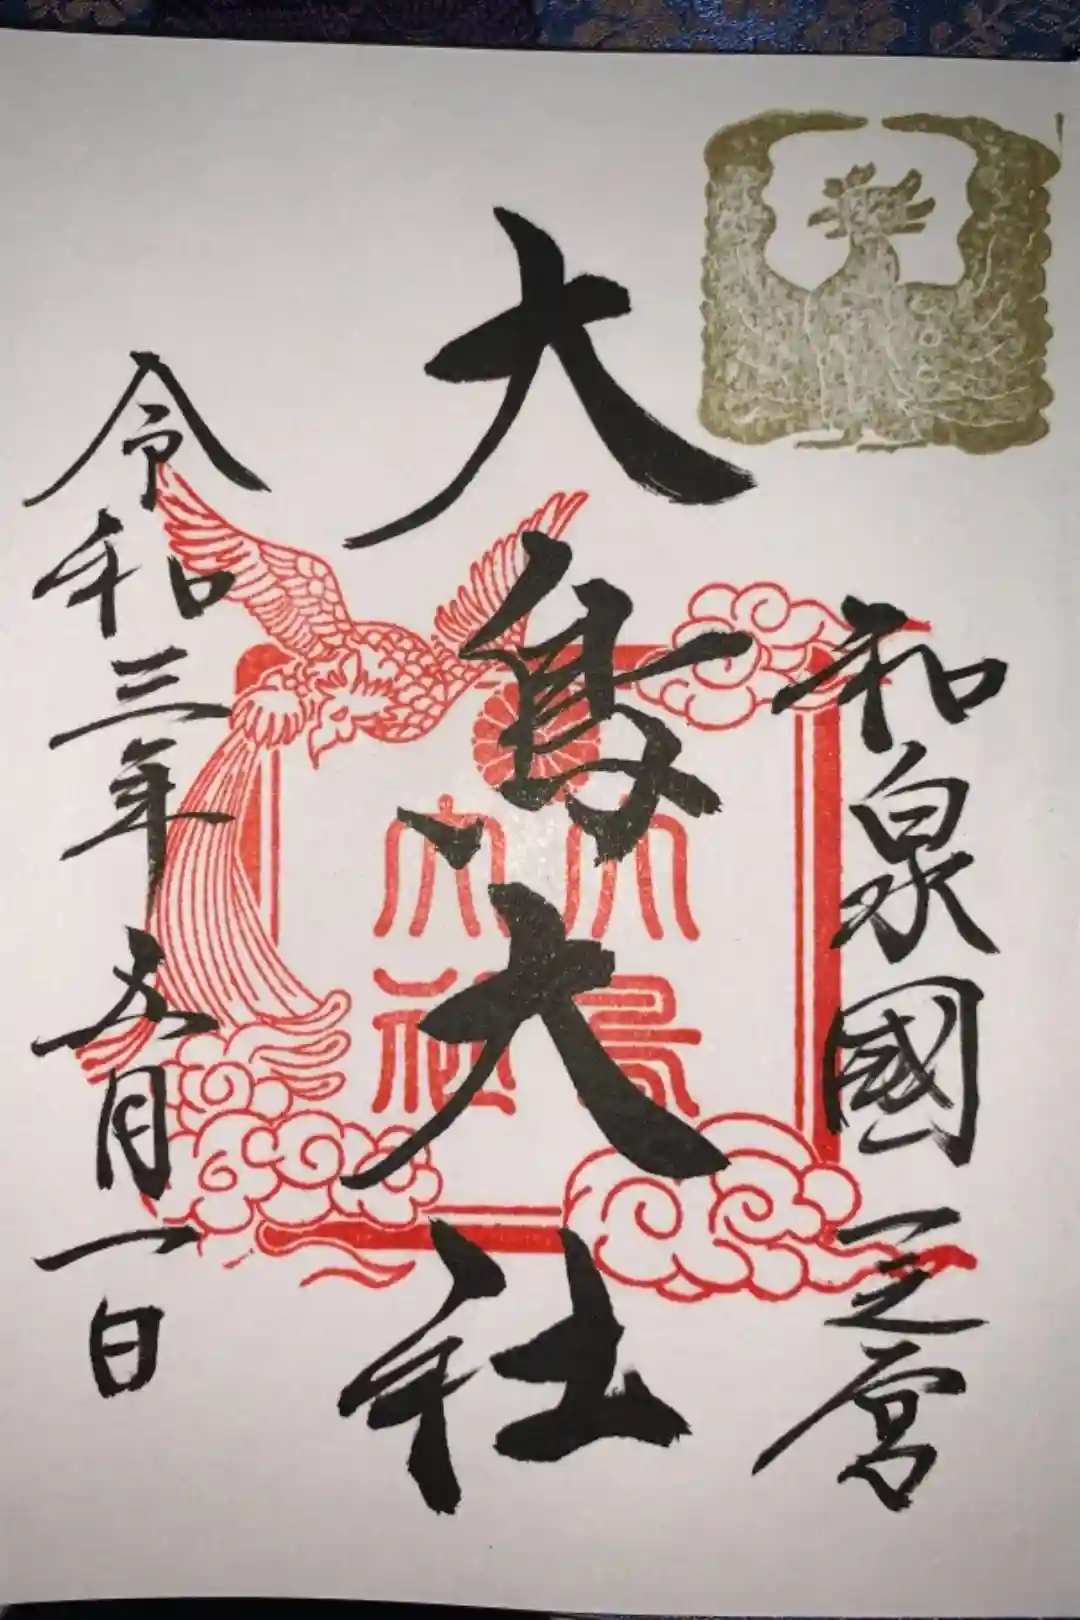 和泉國一之宮
大鳥大社
令和三年五月一日
大鳥
大社